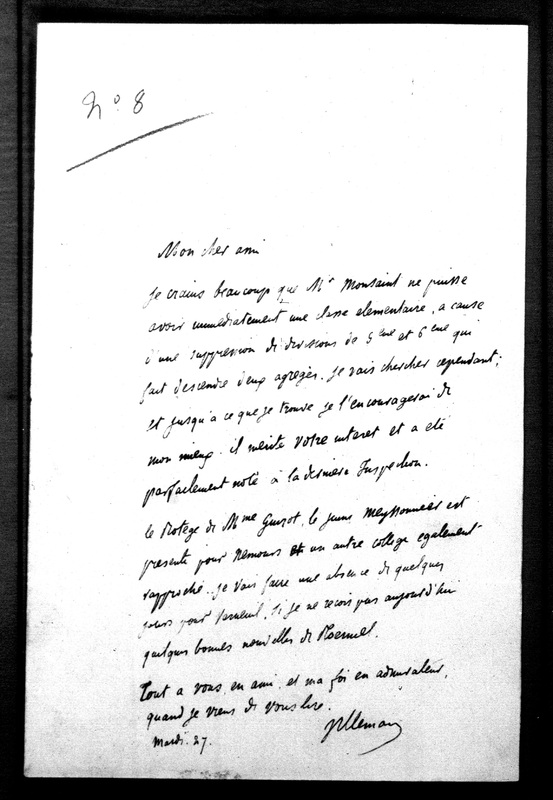 No 8
Mon cher ami
Je crains beaucoup que Mr Monsaint ne puisse
avoir immediatement une classe elementaire, a cause
d'une suppression de divisions de 5eme et 6eme qui
fait descendre deux agrégés. Je vais chercher cependant;
et jusqu'a ce que je trouve je l'encouragerai de
mon mieux. il merite votre interet et a eté
parfaitement noté à la derniere Inspection.
le Protegé de Mme Guizot, le jeune Meyssonnier est
presenté pour Nemours et un autre college egalement
rapproché. Je vais faire une absence de quelques
jours pour si je ne recois pas aujourd'hui
quelques bonnes nouvelles de
Tout a vous en ami, et ma foi en admirateur,
quand je viens de vous lire.
Mardi. 27.
Villemain